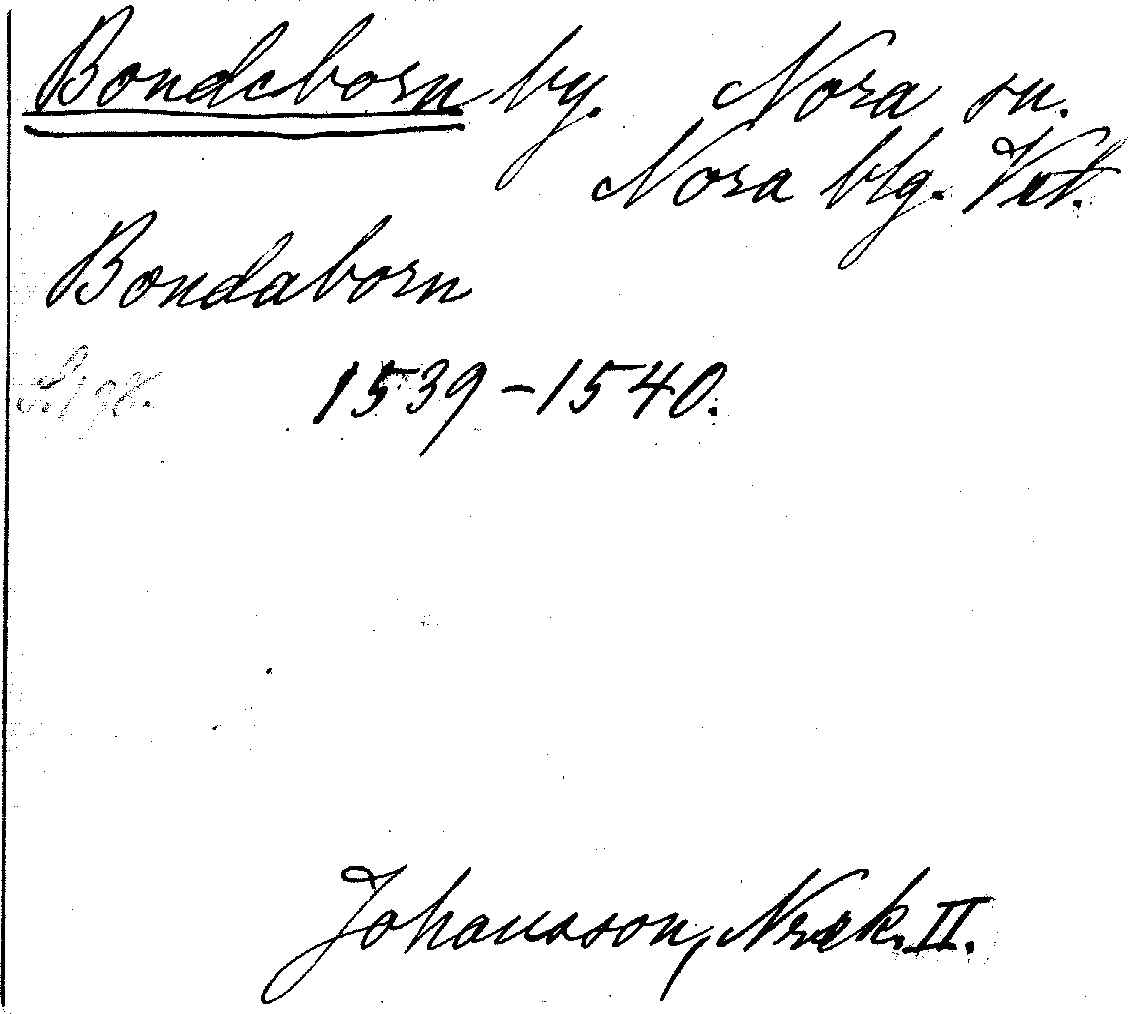 Bondeborn by. Nora sn.
Nora blg. Vstm.
Bondaborn
S. 198. 1539-1540.
Johansson, Norak. II.